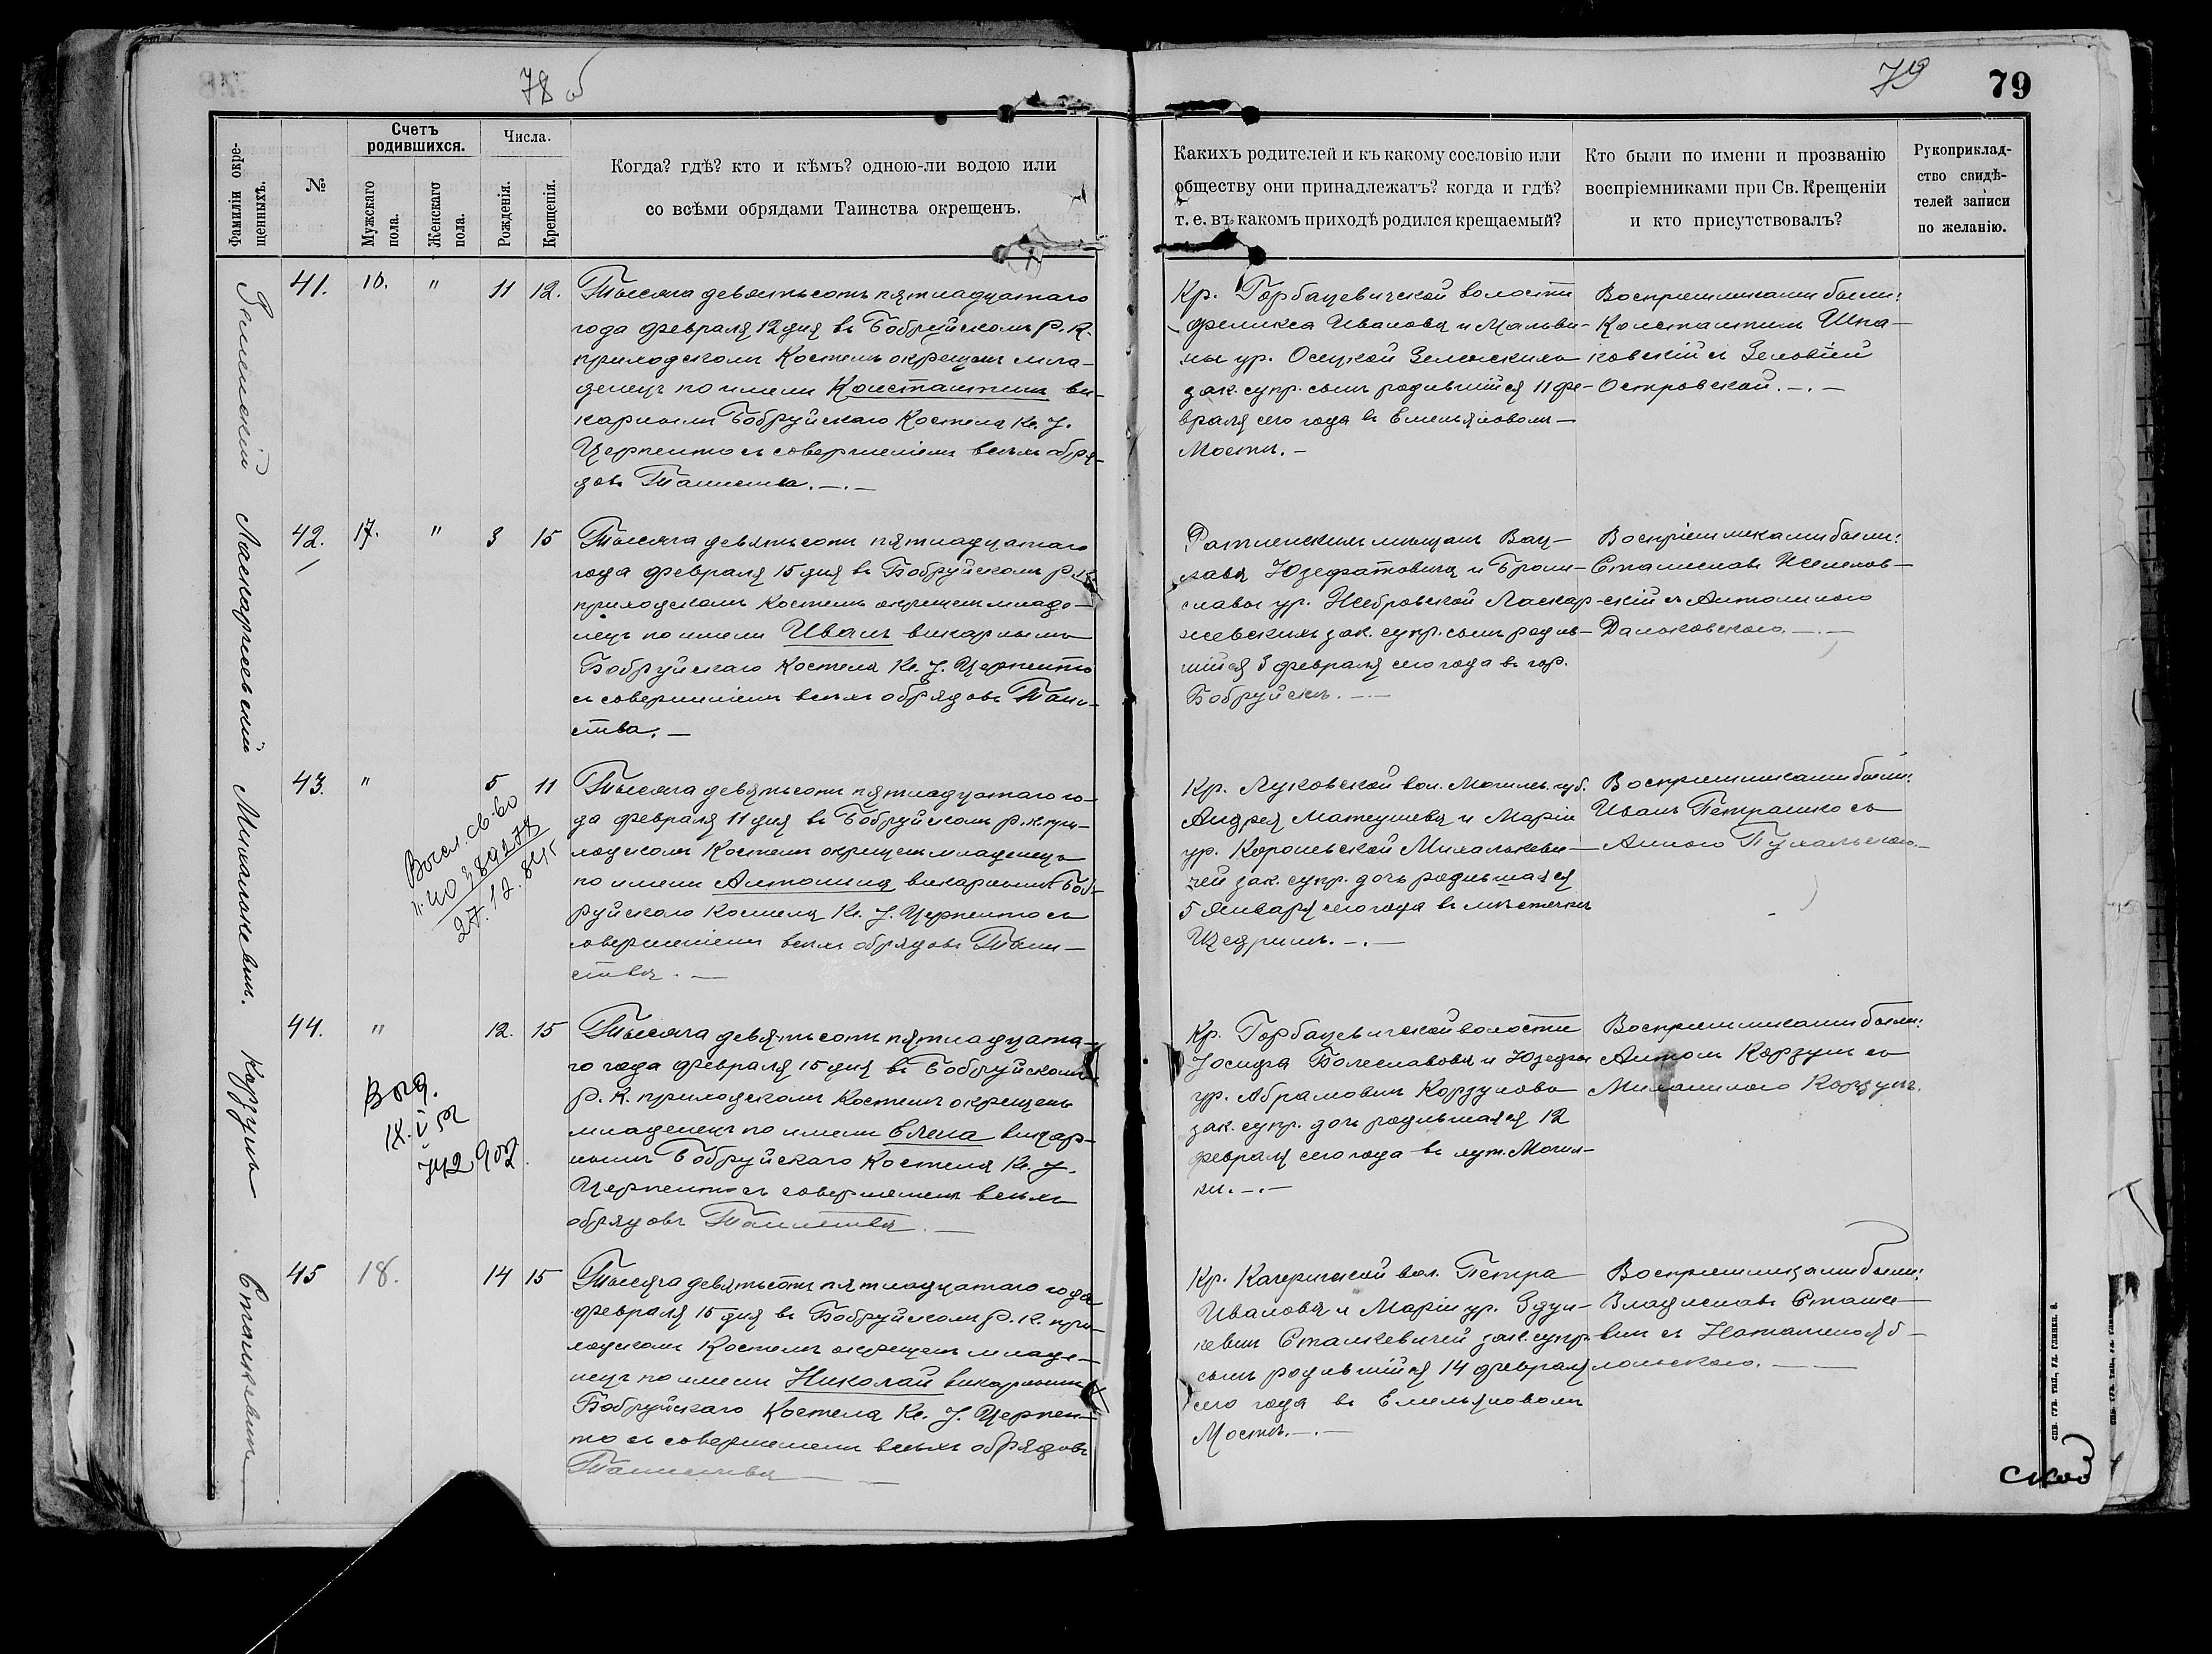 78 об
79
79
Фамиліи окре-
щенныхъ.
№
Счетъ
родившихся.
Мужскаго
пола.
Женскаго
пола.
Числа.
Рожденія.
Крещенія.
Когда? гдѣ? кто и кѣмъ? одною-ли водою или
со всѣми обрядами Таинства окрещенъ.
Какихъ родителей и къ какому сословію или
обществу они принадлежатъ? когда и гдѣ?
т. е. въ какомъ приходѣ родился крещаемый?
Кто были по имени и прозванію
воспріемниками при Св. Крещеніи
и кто присутствовалъ?
Рукоприклад-
ство свидѣ-
телей записи
по желанію.
Зеленскій
41. 16. " 11 12.
Тысяча девятьсотъ пятнадцатаго
года февраля 12 дня въ Бобруйскомъ Р. К.
приходскомъ Костелѣ окрещенъ мла-
денецъ по имени Константинъ ви-
карнымъ Бобруйскаго Костела Кс. І.
Церпенто съ совершеніемъ всѣхъ обря-
довъ Таинства.
Кр. Горбацевичской волости
Феликса Иванова и Мальви-
ны ур. Осецкой Зеленскихъ
зак. супр. сынъ родившійся 11 фе-
враля сего года въ Емельяновомъ
Мостѣ.
Воспріемниками были:
Константинъ Шпа-
ковскій съ Зеновіей
Островской.
Ласкаржевскій
42. 17. " 3 15
Тысяча девятьсотъ пятнадцатаго
года февраля 15 дня въ Бобруйскомъ Р. К.
приходскомъ Костелѣ окрещенъ младе-
нецъ по имени Иванъ викарнымъ
Бобруйскаго Костела Кс. І. Церпенто
съ совершеніемъ всѣхъ обрядовъ Таин-
ства.
мѣщанъ Вац-
лава Юзефатовича и Брони-
славы ур. Жебровской Ласкар-
жевскихъ зак. супр. сынъ родив-
шійся 3 февраля сего года въ гор.
Бобруйскѣ.
Воспріемниками были:
Станиславъ
скій съ Антониною
Даньковскою.
Михалькевич.
43. " 5 11
Тысяча девятьсотъ пятнадцатаго го-
да февраля 11 дня въ Бобруйскомъ Р. К. при-
ходскомъ Костелѣ окрещенъ младенецъ
по имени Антонина викарнымъ Боб-
руйскаго Костела Кс. І. Церпенто съ
совершеніемъ всѣхъ обрядовъ Таин-
ства.
Высл. св-во
27.12.
Кр. Луковской вол. Могилев. губ.
Андрея Матеушева и Маріи
ур. Королевской Михалькеви-
чей зак. супр. дочь родившаяся
5 Января сего года въ мѣстечкѣ
Щедринѣ.
Воспріемниками были:
Иванъ Петрашко съ
Анною Пухальскою
Корзунъ
44. " 12. 15
Тысяча девятьсотъ пятнадцата-
го года февраля 15 дня въ Бобруйскомъ
Р. К. приходскомъ Костелѣ окрещенъ
младенецъ по имени Елена викар-
нымъ Бобруйскаго Костела Кс. І.
Церпенто съ совершеніемъ всѣхъ
обрядовъ Таинства.
Кр. Горбацевичской волости
Іосифа Болеславова и Юзефы
ур. Абрамовичъ Корзуновъ
зак. супр. дочь родившаяся 12
февраля сего года въ хут. Могил-
ки.
Воспріемниками были:
Антонъ Корзунъ съ
Михалиною Корзунъ.
Станкевичъ
45 18. 14 15
Тысяча девятьсотъ пятнадцатаго года
февраля 15 дня въ Бобруйскомъ Р. К. при-
ходскомъ Костелѣ окрещенъ младе-
нецъ по имени Николай викарнымъ
Бобруйскаго Костела Кс. І. Церпен-
то съ совершеніемъ всѣхъ обрядовъ
Таинства
Кр. Качеричской вол. Петра
Иванова и Маріи ур.
Станкевичей зак. супр.
сынъ родившійся 14 февраля
сего года въ Емельяновомъ
Мостѣ.
Воспріемниками были:
Владиславъ
СПБ. ГУБ. ТИП., УЛ. ГЛИНКИ. 8.